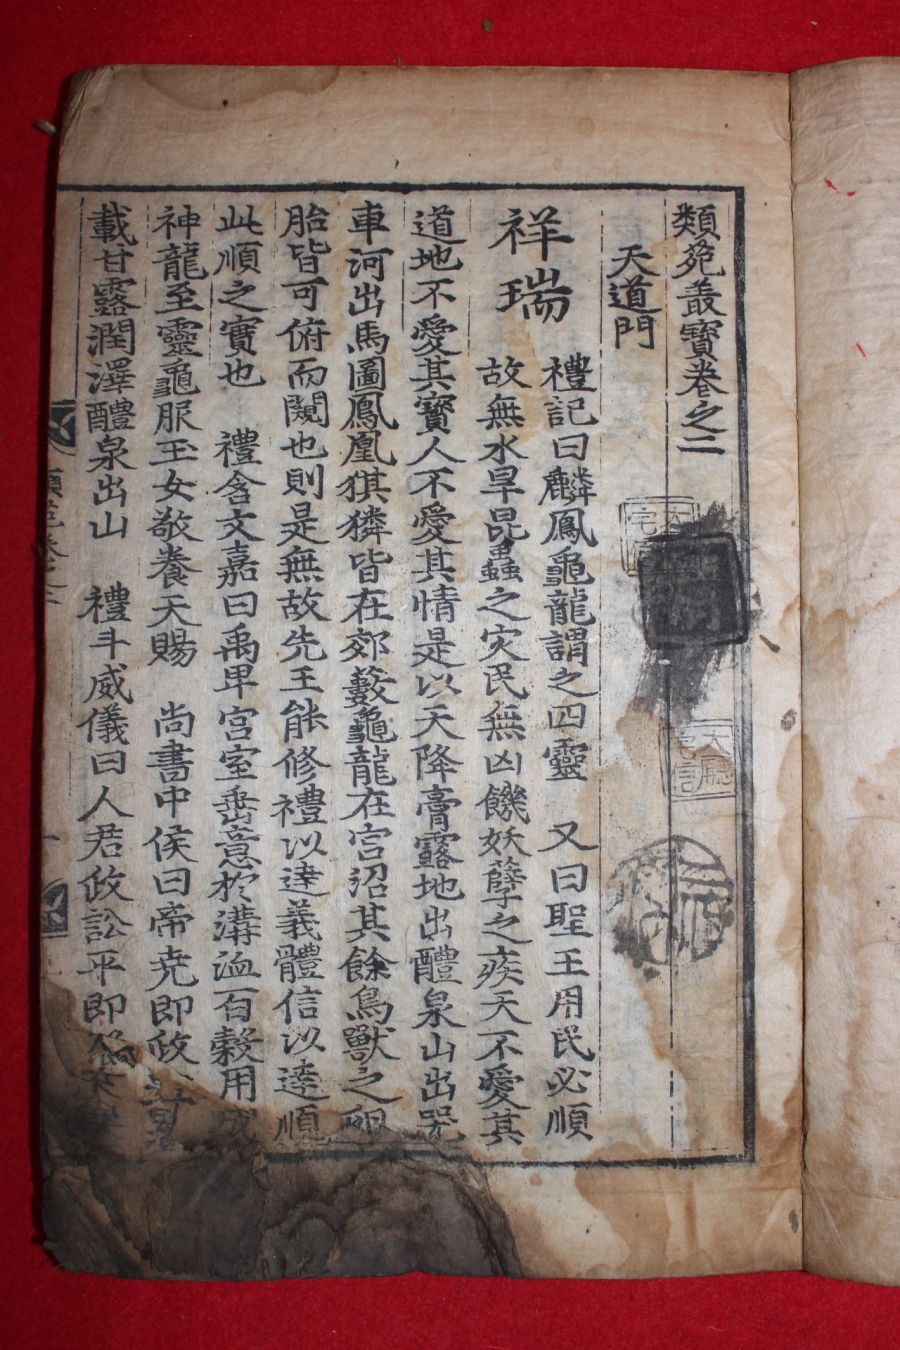 類苑叢寶卷之二
天道門
祥瑞
禮記曰麟鳳龜龍謂之四靈 又曰聖王用民必順
故無水旱昆蟲之灾民無凶饑妖孽之疾天不愛其
道地不愛其寶人不愛其情是以天降膏露地出醴泉山出器
車河出馬圖鳳凰猉獜皆在郊藪龜龍在宮沼其餘鳥獸之卵
胎皆可俯而闚也則是無故先王能修禮以達義體信以逹順
此順之實也 禮含文嘉曰禹卑宮室垂意於溝洫百穀用成
神龍至靈龜服玉女敬養天賜 尚書中侯曰帝尭即政
載甘露潤澤醴泉出山 禮斗威儀曰人君政訟平即
類苑卷之二